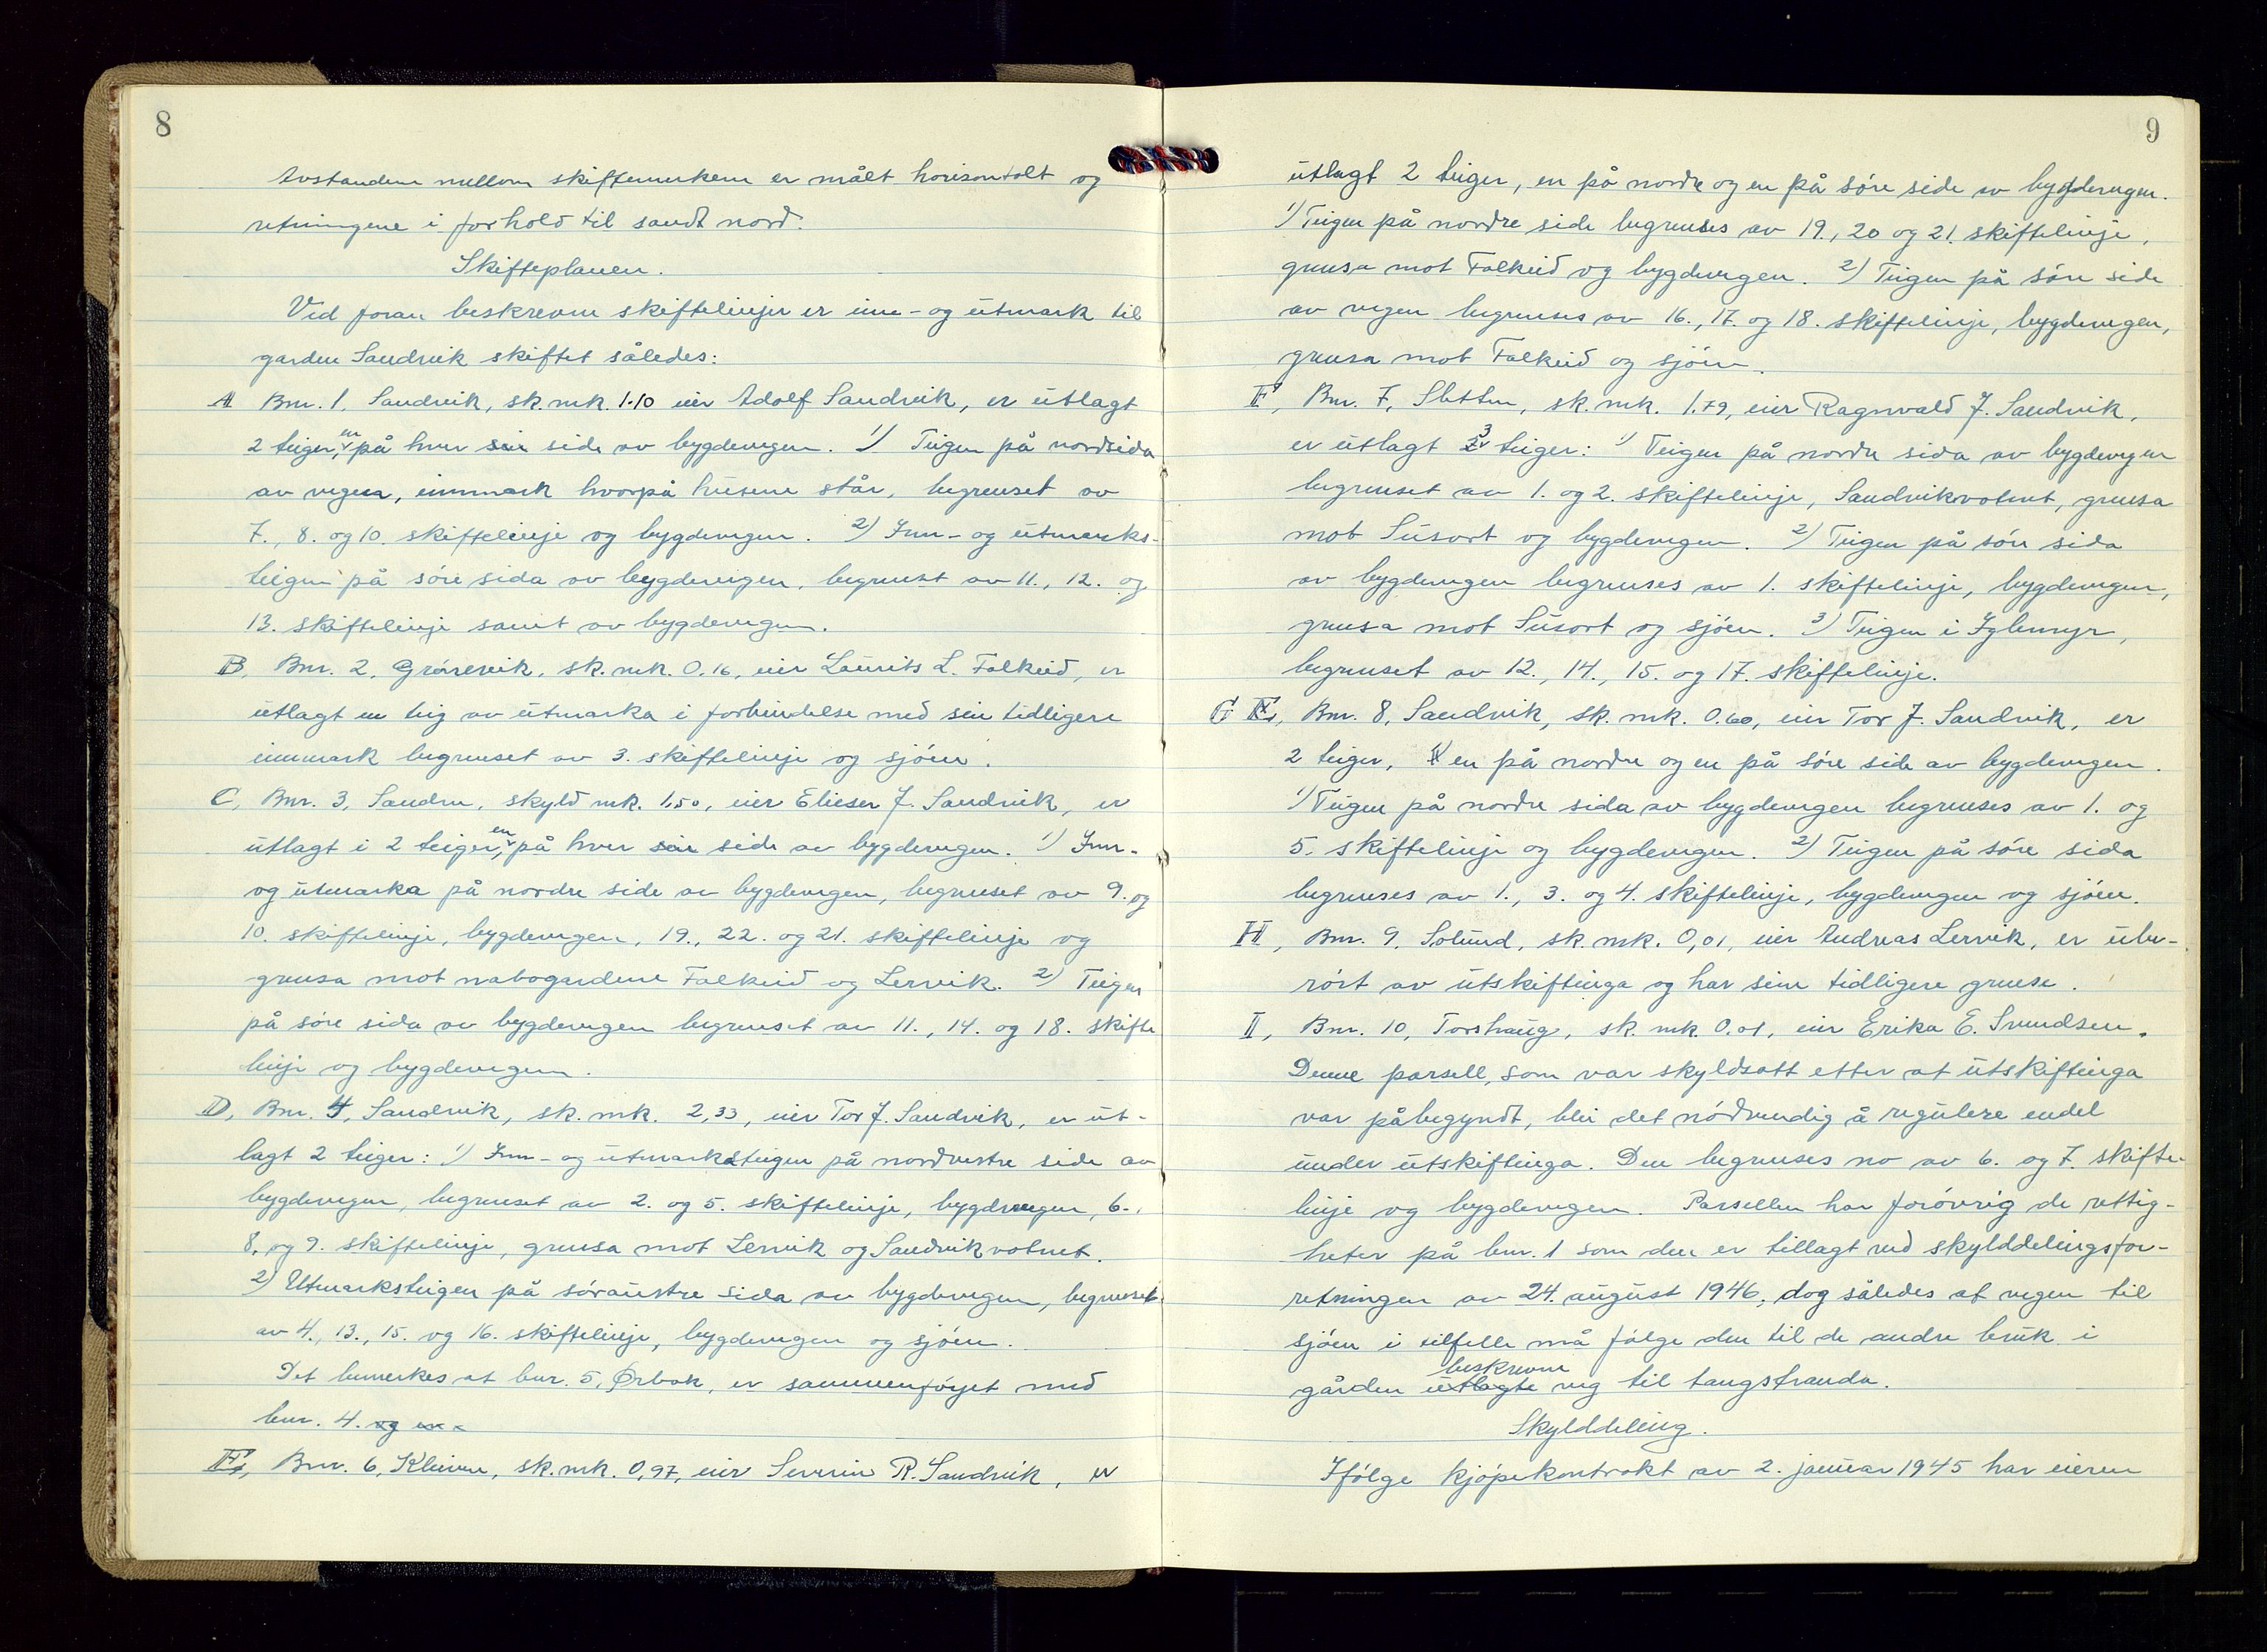 8
Avstandene mellom skiftemerkene er målt horisontalt og
retningene i forhold til sandt nord.
Skifteplanen.
Ved foran beskrevne skiftelinjer er inn- og utmark til
garden Sandvik skiftet således:
A Bnr. 1, Sandvik, sk.mk. 1.10 eier Adolf Sandvik, er utlagt
2 teiger, en på hver sin side av bygdevegen. 1) Teigen på nordsida
av vegen, innmark hvorpå husene står, begrenset av
7., 8. og 10. skiftelinje og bygdevegen. 2) Inn- og utmarks-
teigen på søre sida av bygdevegen, begrenset av 11., 12. og
13. skiftelinje samt av bygdevegen.
B, Bnr. 2, Grårevik, sk.mk. 0,16, eier Laurits L. Falkeid, er
utlagt en teig av utmarka i forbindelse med sin tidligere
innmark begrenset av 3. skiftelinje og sjøen.
C, Bnr. 3, Sandre, skyld mk. 1,50, eier Elieser J. Sandvik, er
utlagt i 2 teiger, en på hver sin side av bygdevegen. 1) Inn-
og utmarka på nordre side av bygdevegen, begrenset av 9. og
10. skiftelinje, bygdevegen, 19., 22. og 21. skiftelinje og
grensa mot nabogardene Falkeid og Lervik. 2) Teigen
på søre sida av bygdevegen begrenset av 11., 14. og 18. skifte
linje og bygdevegen.
D, Bnr. 4, Sandvik, sk.mk. 2,33, eier Tor J. Sandvik, er ut-
lagt 2 teiger: 1) Inn- og utmarksteigen på nordvestre side av
bygdevegen, begrenset av 2. og 5. skiftelinje, bygdevegen, 6.,
8. og 9. skiftelinje, grensa mot Lervik og Sandvikvatnet.
2) Utmarksteigen på søraustre sida av bygdevegen, begrenset
av 4., 13., 15. og 16. skiftelinje, bygdevegen og sjøen.
Det bemerkes at bnr. 5, Ørbak, er sammenføyet med
bnr. 4. og
E, Bnr. 6, Kleiven, sk.mk. 0,97, eier Severin R. Sandvik, er
9
utlagt 2 teiger, en på nordre og en på søre side av bygdevegen.
1) Teigen på nordre side begrenses av 19., 20 og 21. skiftelinje,
grensa mot Falkeid og bygdevegen. 2) Teigen på søre side
av vegen begrenses av 16., 17. og 18. skiftelinje, bygdevegen,
grensa mot Falkeid og sjøen.
F, Bnr. 7, Sletten, sk.mk. 1.79, eier Ragnvald J. Sandvik,
er utlagt 3 teiger: 1) Teigen på nordre sida av bygdevegen
begrenset av 1. og 2. skiftelinje, Sandvikvatnet, grensa
mot Susort og bygdevegen. 2) Teigen på søre sida
av bygdevegen begrenses av 1. skiftelinje, bygdevegen,
grensa mot Susort og sjøen. 3) Teigen i Iglemyr,
begrenset av 12., 14., 15. og 17. skiftelinje.
G, Bnr. 8, Sandvik, sk.mk. 0.60, eier Tor J. Sandvik, er
2 teiger, en på nordre og en på søre side av bygdevegen.
1) Teigen på nordre sida av bygdevegen begrenses av 1. og
5. skiftelinje og bygdevegen. 2) Teigen på søre sida
begrenses av 1., 3. og 4. skiftelinje, bygdevegen og sjøen.
H, Bnr. 9, Solund, sk.mk. 0,01, eier Andreas Lervik, er ube-
rørt av utskiftinga og har sine tidligere grense.
I, Bnr. 10, Torshaug, sk.mk. 0.01, eier Erika E. Svendsen.
Denne parsell, som var skyldsatt etter at utskiftinga
var påbegyndt, blei det nødvendig å regulere endel
under utskiftinga. Den begrenses no av 6. og 7. skifte-
linje og bygdevegen. Parsellen har forøvrig de rettig-
heter på bnr. 1 som den er tillagt ved skylddelingsfor-
retningen av 24. august 1946, dog således at vegen til
sjøen i tilfelle må følge den til de andre bruk i
gården utlagte beskrevne veg til tangstranda.
Skylddeling.
Ifølge kjøpekontrakt av 2. januar 1945 har eieren